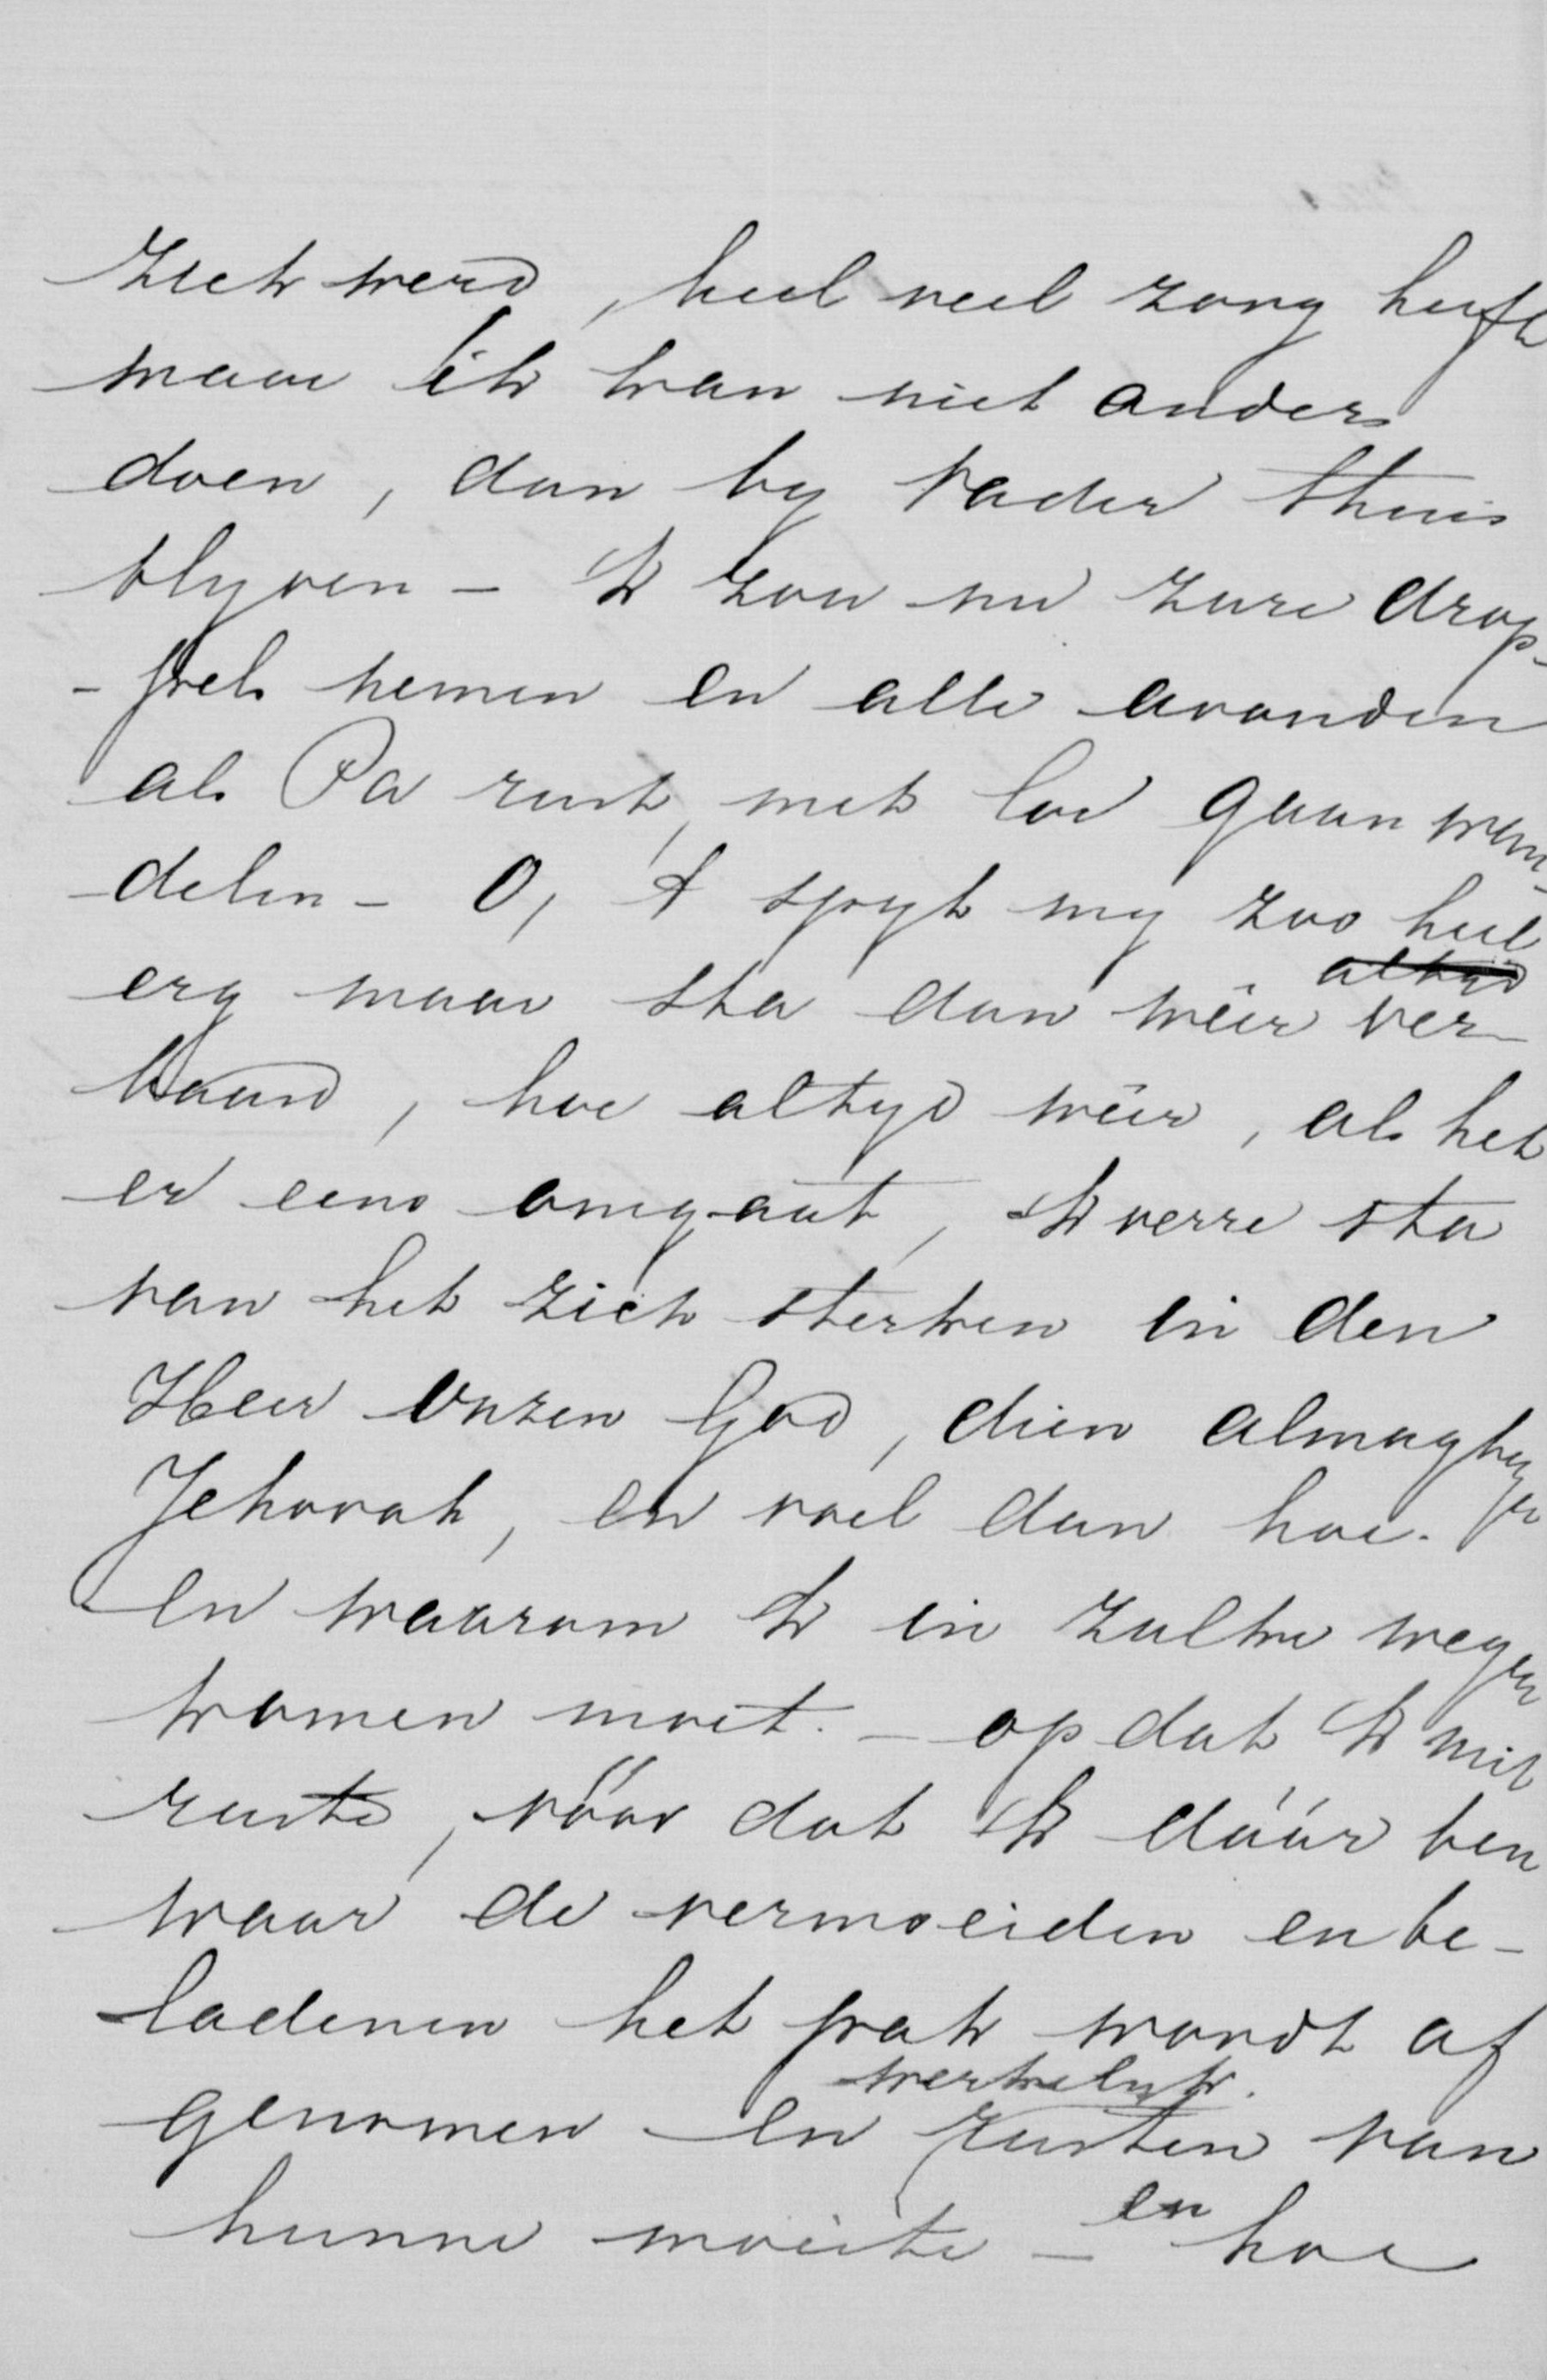 ziek werd, heel veel zorg heeft
maar ik kan niet anders
doen, dan by Vader thuis
blyven – Ik zou nu zure drop-
-pels nemen en alle avonden
als Pa rust, met Loe gaan wan-
delen – O, 't spyt my zoo heel
erg maar sta dan wéér ver-
baasd, hoe altyd wéér, als het
er eens omgaat, ik verre sta
van het zich sterken in den
Heer onzen God, dien almagtigen
Jehovah, en voel dan hoe
en waarom ik in zulke wegen
komen moet. – op dat ik niet
ruste, vóór dat ik dáár ben
waar de vermoeiden en be-
ladenen het pak wordt af
genomen en werkelyk rusten van
hunne moeite – en hoe